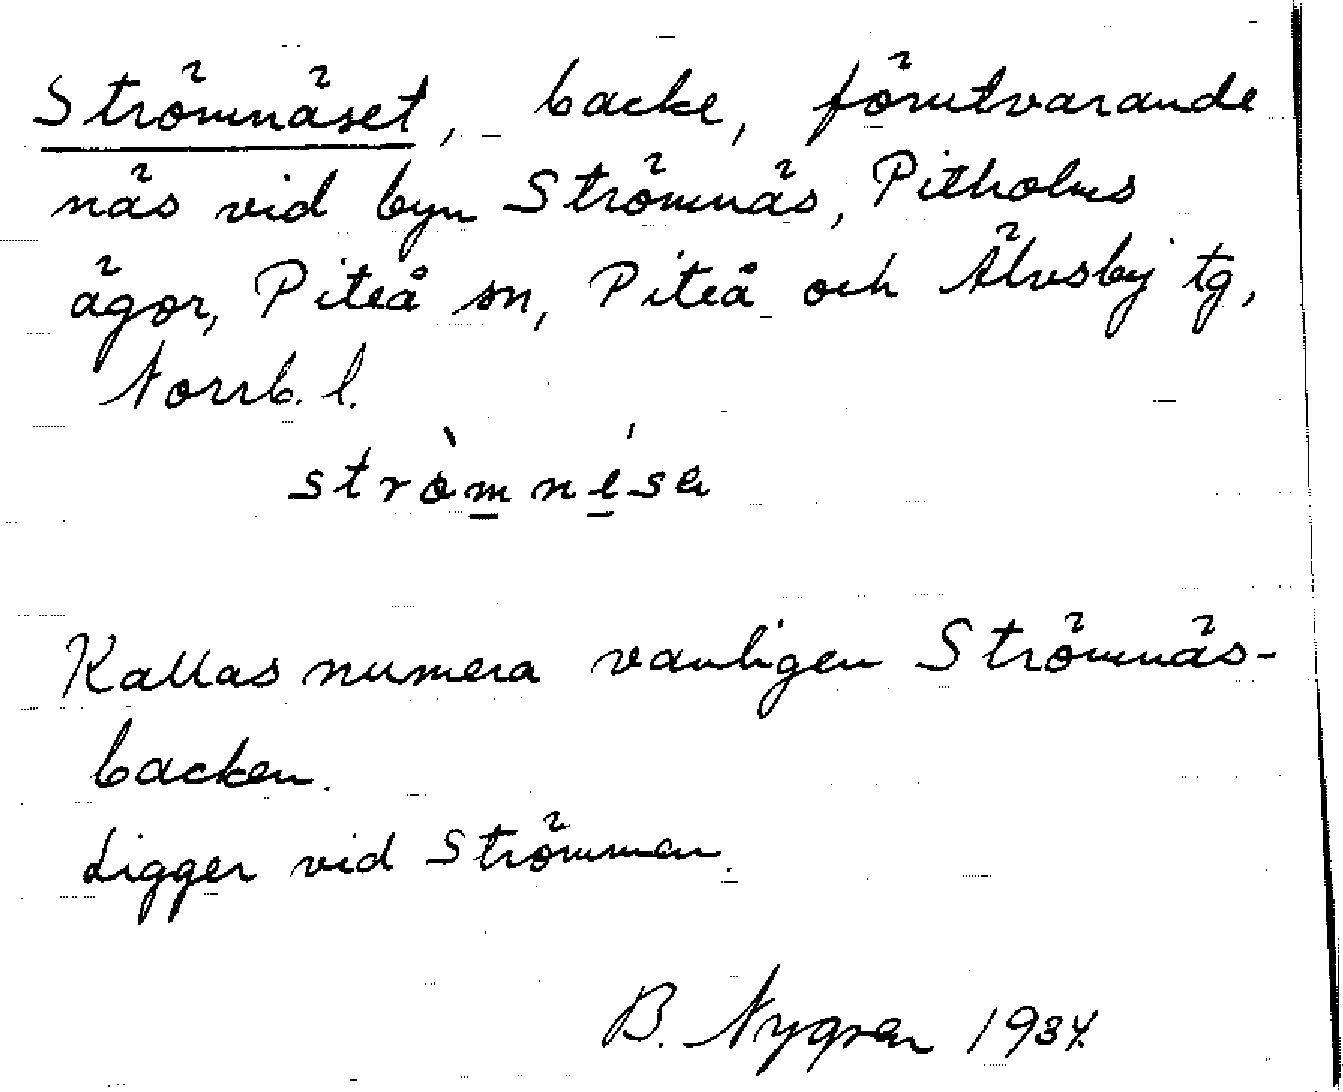 Strömnäset, backe, förutvarande
näs vid byn Strömnäs, Pitholms
ägor, Piteå sn, Piteå och Älvsby tg,
Norrb. l.
Kallas numera vanligen Strömnäs-
backen.
Ligger vid Strömmen.
B. Nygren 1937.